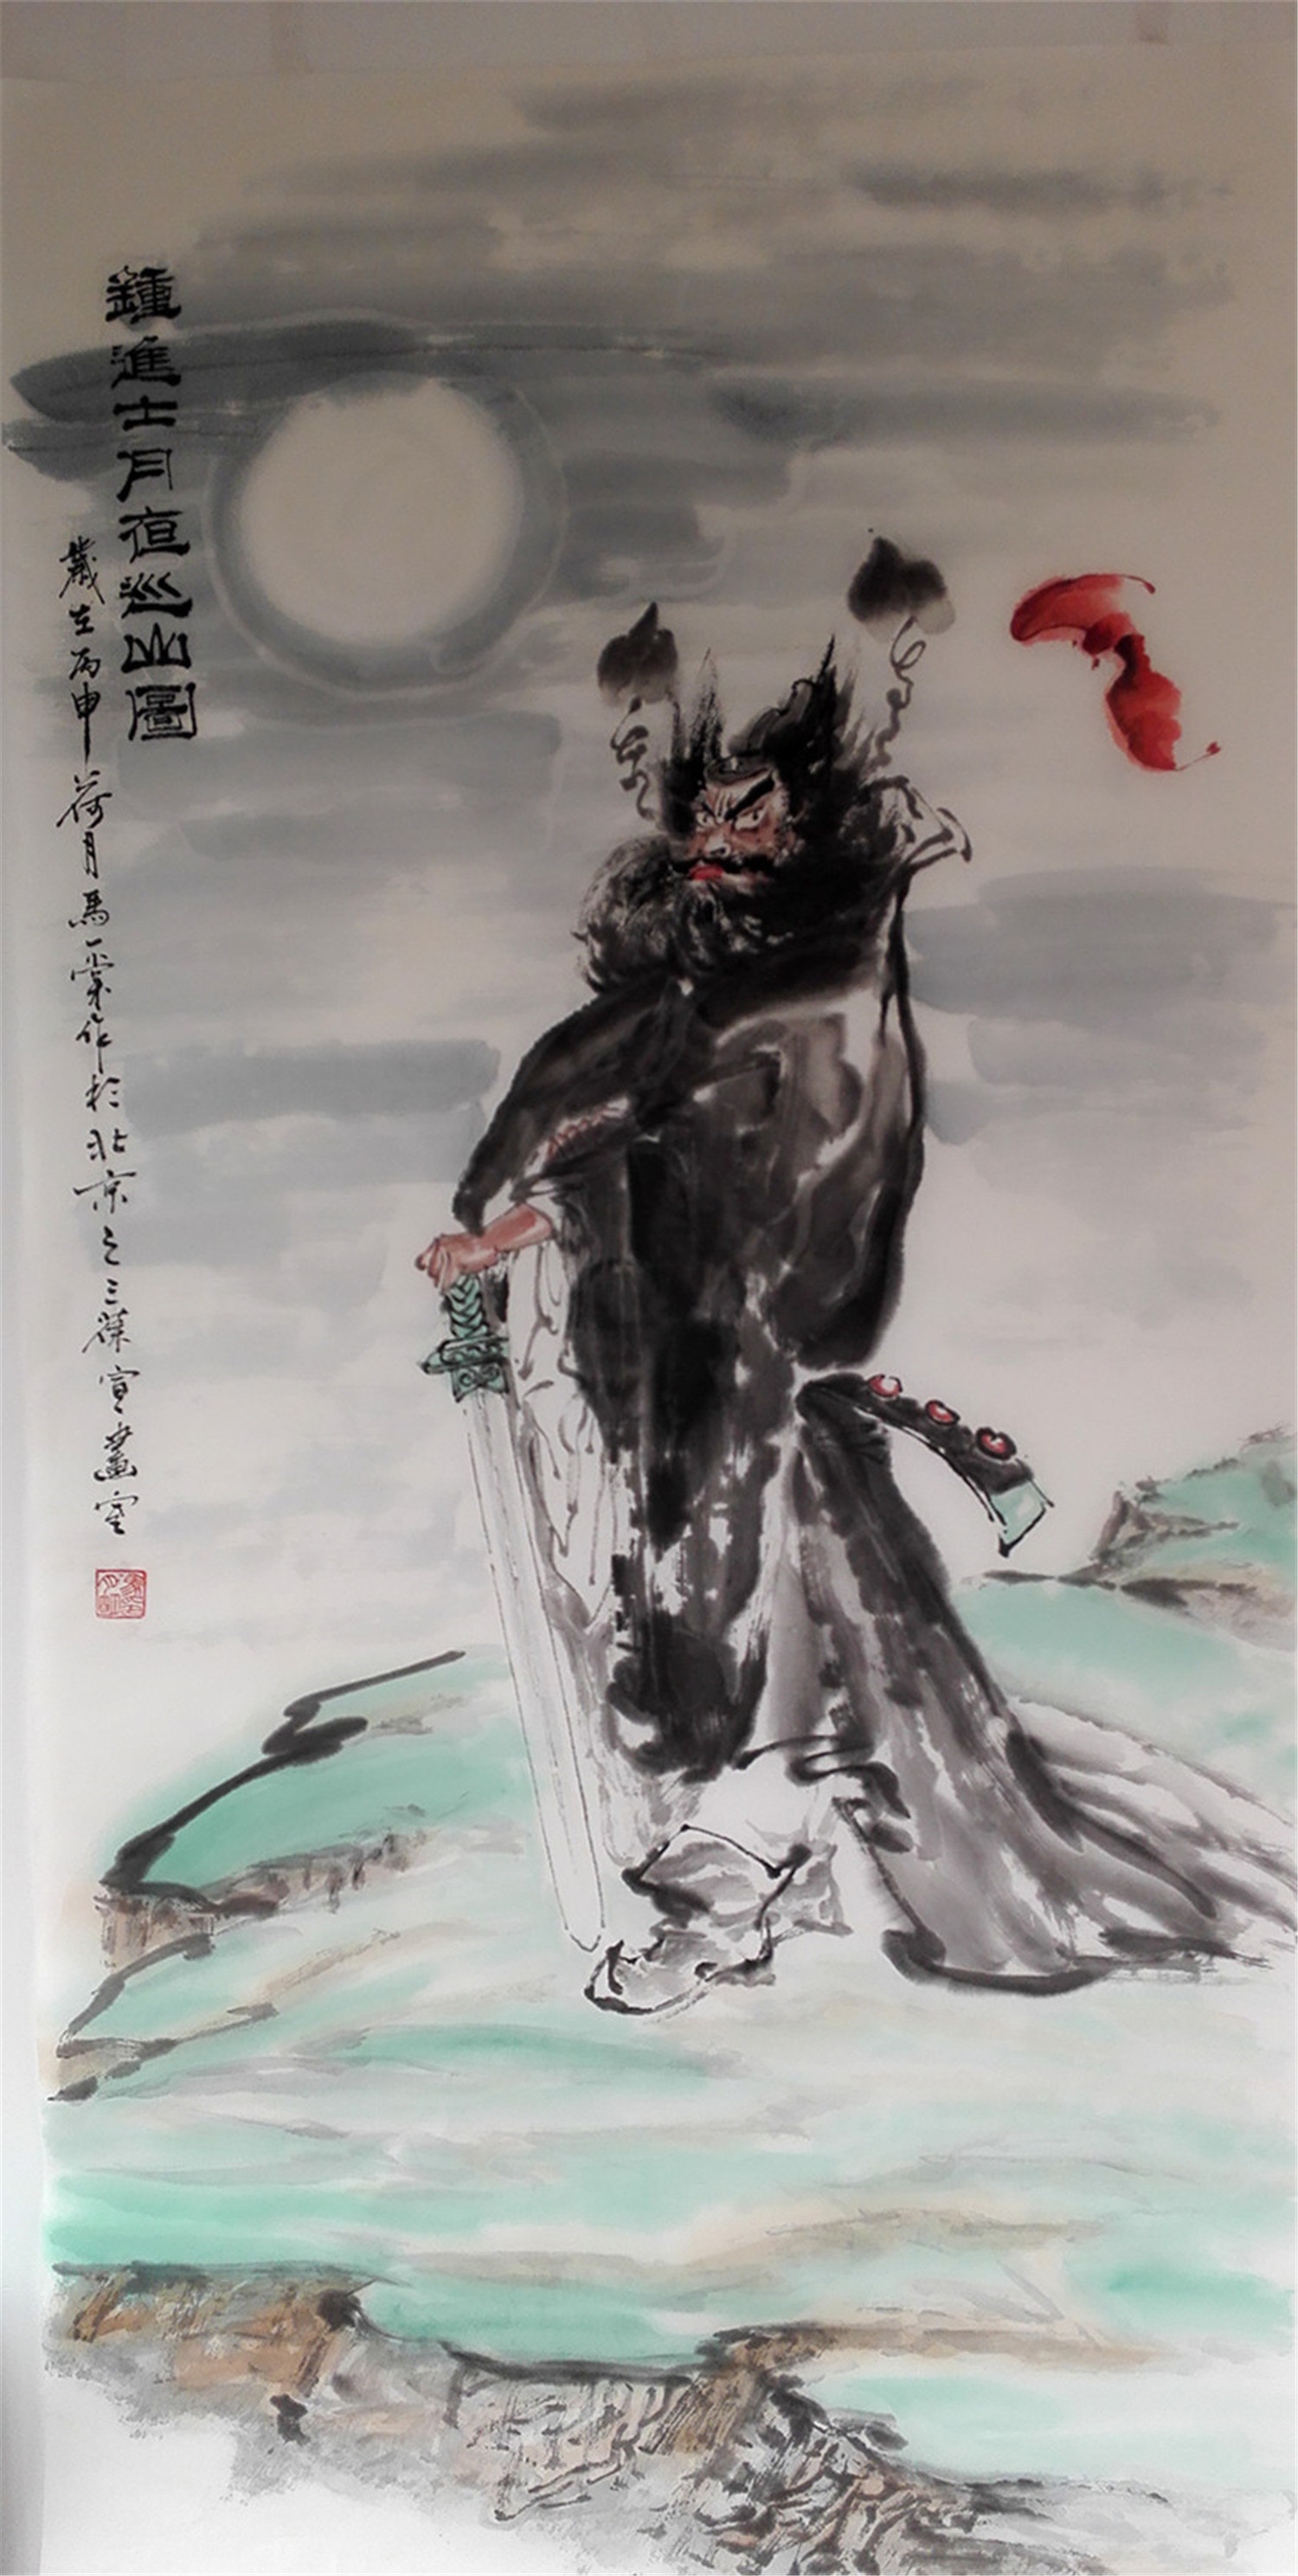 鍾進士月夜巡山圖
歲在丙申荷月馬一棠作於北京之三葆宣畫室